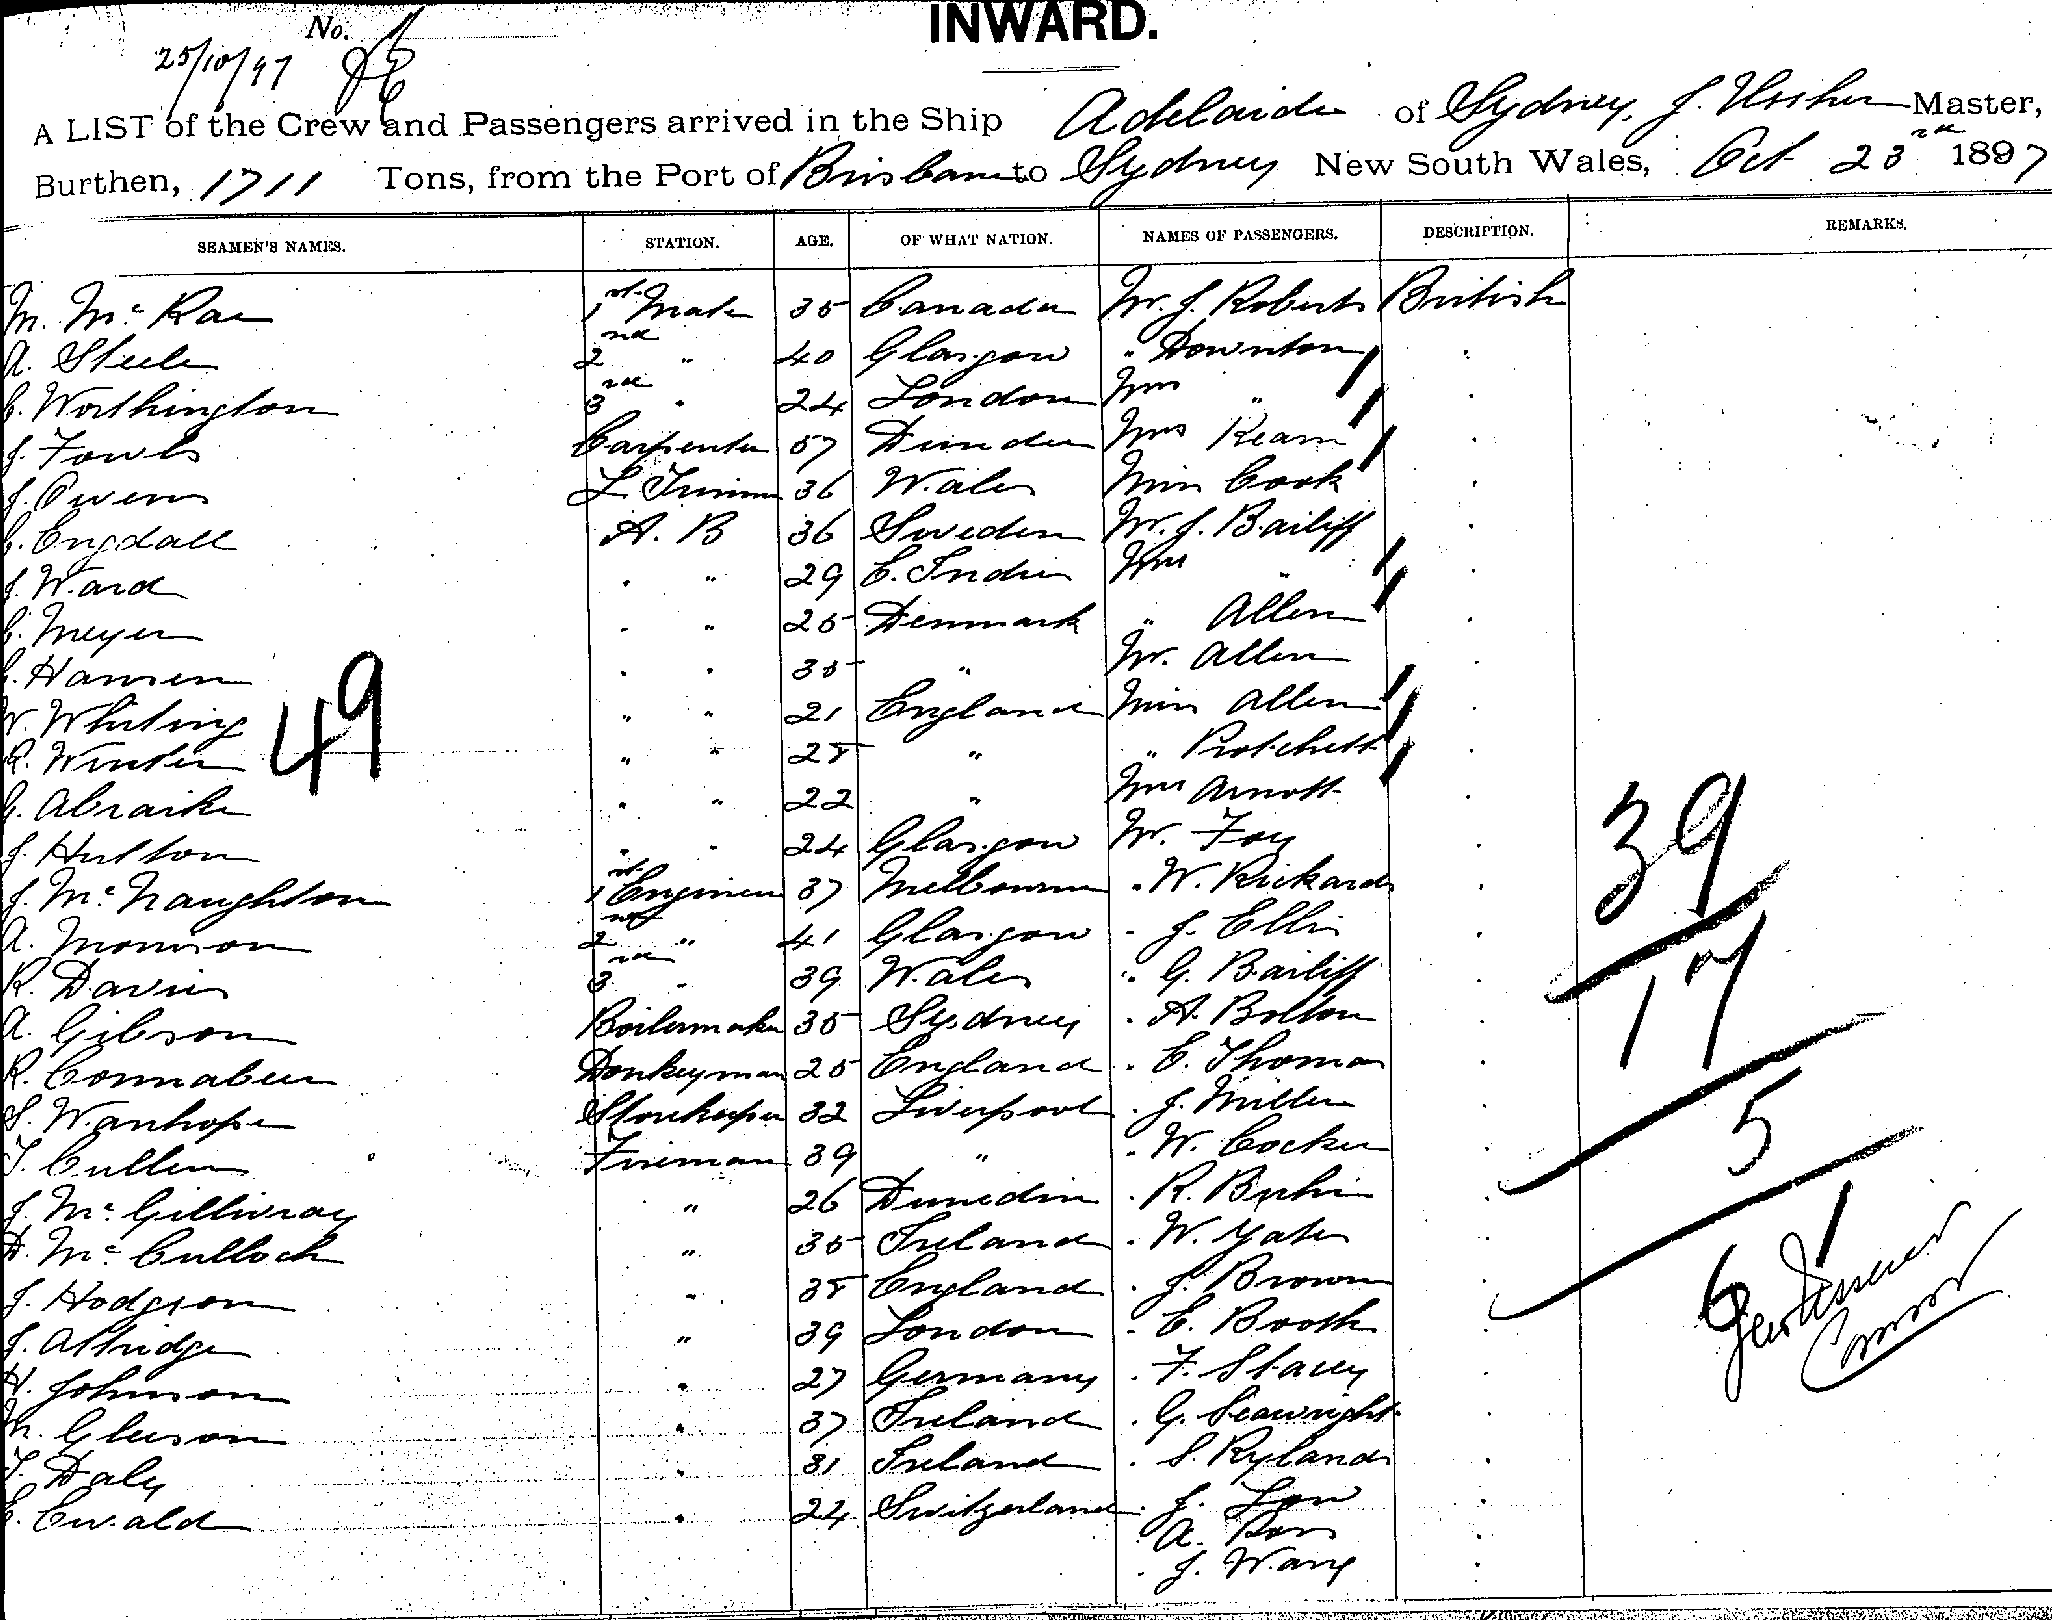 INWARD.
No.
25/10/97
A LIST of the Crew and Passengers arrived in the Ship Adelaide of Sydney, J. Ussher Master,
Burthen, 1711 Tons, from the Port of Brisbane to Sydney New South Wales, Oct 23rd 1897
SEAMEN'S NAMES. STATION. AGE. OF WHAT NATION. NAMES OF PASSENGERS. DESCRIPTION. REMARKS.
M. McRae 1st Mate 35 Canada Mr. J. Roberts British
A. Steele 2nd " 40 Glasgow " Downton
C. Worthington 3rd " 24 London Mrs "
J. Fowls Carpenter 57 Dundee Mrs Kearn
J. Owens L. Trimmer 36 Wales Miss Cook
C. Engdall A. B 36 Sweden Mr. J. Bailiff
J. Ward " " 29 E. Indies Mrs "
C. Meyer " " 25 Denmark " Allen
C. Hansen " " 35 " Mr. Allen
W. Whiting " " 21 England Miss Allen
R. Winter " " 28 " " Protchett
G. " " 22 " Mrs Arnott
49
J. Hutton " " 24 Glasgow Mr. Foy
J. McNaughton 1st Engineer 37 Melbourne " W. Rickards
39
A. Morrison 2nd " 41 Glasgow " J. Ellis
R. Davies 3rd " 39 Wales " G. Bailiff
A. Gibson Boilermaker 35 Sydney " A. Bolton
17
R. Connabeer Donkeyman 25 England " E. Thomas
S. Wanhope Storekeeper 32 Liverpool " J. Miller
5
T. Cullen Fireman 39 " " W. Cocker
J. McGillivray " 26 Dunedin " R.
D. McCulloch " 35 Ireland " W. Yates
1
J. Hodgson " 38 England " J. Brown
6
J. Attridge " 39 London " E. Booth
H. Johnson " 27 Germany " F. Stacey
M. Gleeson " 37 Ireland " G. Seawright
T. Daly " 31 Ireland " S. Rylands
E. Ewald " 24 Switzerland " J. Low
" A. Ross
" J. Wang